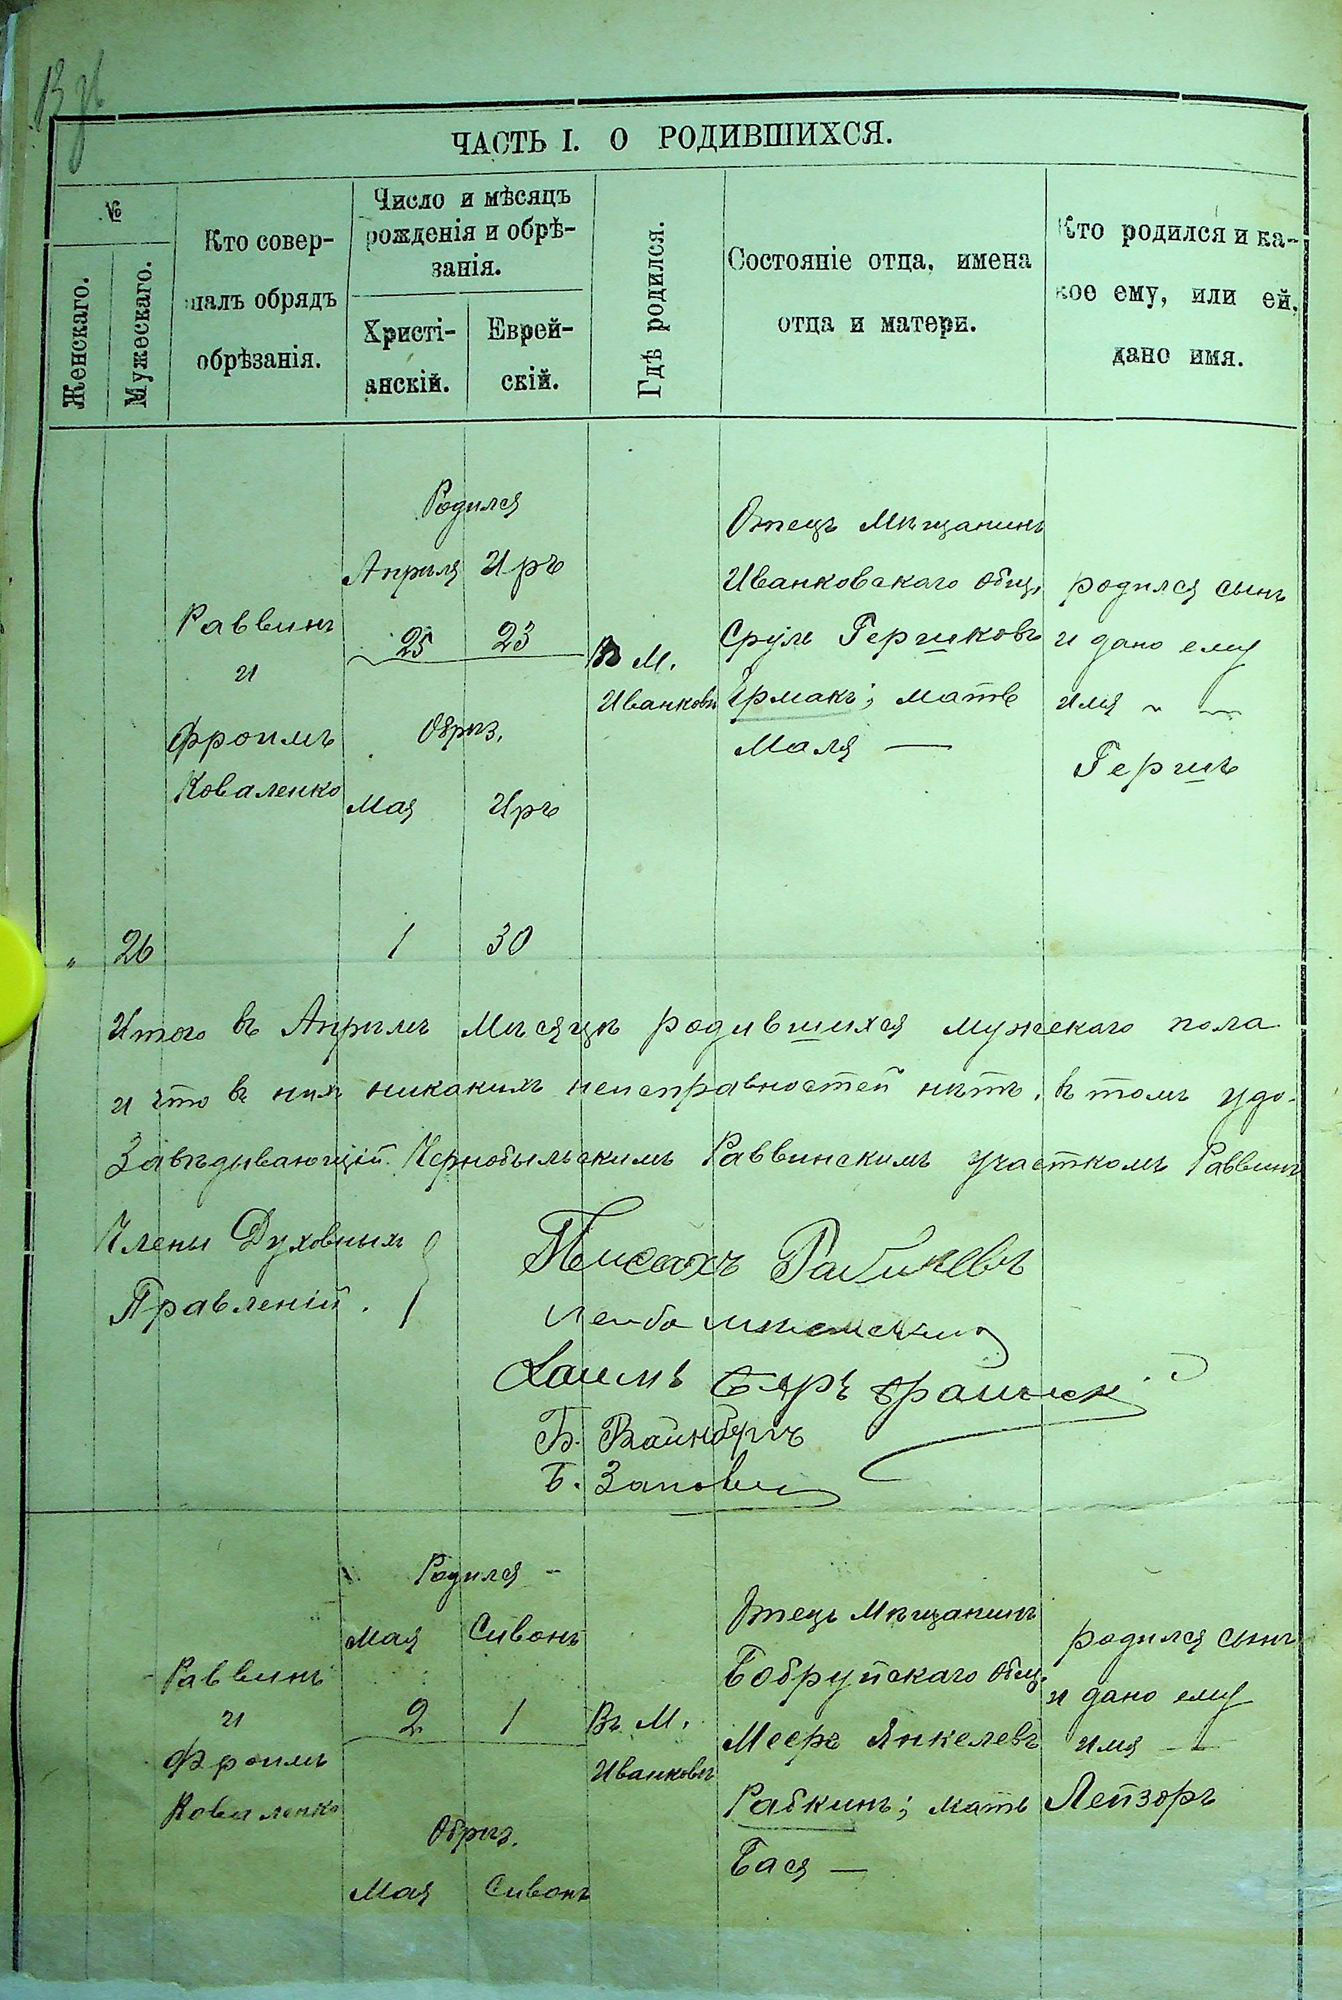 ЧАСТЬ I. О РОДИВШИХСЯ.
№
Женскаго.
Мужескаго.
Кто совер-
шалъ обрядъ
обрѣзанія.
Число и мѣсяцъ
рожденія и обрѣ-
занія.
Христі-
анскій.
Еврей-
скій.
Гдѣ родился.
Состояніе отца, имена
отца и матери.
Кто родился и ка-
кое ему, или ей,
дано имя.
" 26
Раввинъ
и
Фроимъ
Коваленко
Родился
Апрѣля Иръ
25 23
Обрѣз.
Мая Иръ
1 30
В М.
Иванковѣ
Отецъ Мѣщанинъ
Иванковскаго Общ.
Сруль Гершковъ
Ермакъ; мать
Маля —
родился сынъ
и дано ему
имя
Гершъ
Итого въ Апрѣлѣ Мѣсяцѣ родившихся мужескаго пола
и что в них никакихъ неисправностей нѣтъ, въ томъ удо-
Завѣдывающій Чернобыльскимъ Раввинскимъ участкомъ Раввинъ
Члены Духовныхъ
Правленій.
Хаимъ Беръ
Б. Вайнбергъ
Раввинъ
и
Фроимъ
Коваленко
Родился
Мая Сивонъ
2 1
Обрѣз.
Мая Сивонъ
Въ М.
Иванковѣ
Отецъ Мѣщанинъ
Бобруйскаго Общ.
Мееръ Янкелевъ
Рабкинъ; мать
Бася —
родился сынъ
и дано ему
имя —
Лейзоръ